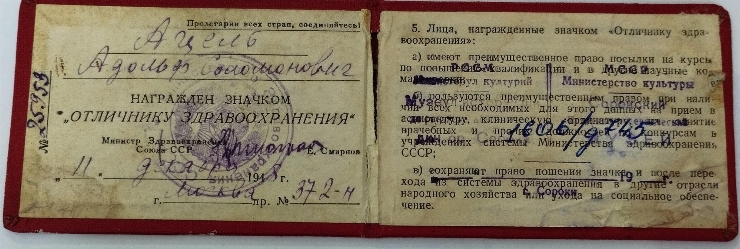 Пролетарии всех стран, соединяйтесь!
Ацель
Адольф Соломонович
НАГРАЖДЕН ЗНАЧКОМ
„ОТЛИЧНИКУ ЗДРАВООХРАНЕНИЯ"
Министр Здравоохранения
Союза ССР Е. Смирнов
„11" 194 г.
г. Москва пр. № 372-н
№ 25.959
5. Лица, награжденные значком «Отличнику здравоохранения»:
а) имеют преимущественное право посылки на курсы
по повышению квалификации и в другие научные ко-
мандировки
б) пользуются преимущественным правом при нали-
чии всех необходимых для этого данных на прием в
аспирантуру, клиническую ординатуру
врачебных и конкурсам в
учреждениях системы Министерства здравоохранения
СССР;
в) сохраняют право ношения значка и после пере-
хода из системы здравоохранения в другие отрасли
народного хозяйства или ухода на социальное обеспе-
чение.
РССМ
МССР
Министерство культуры
г. Сороки